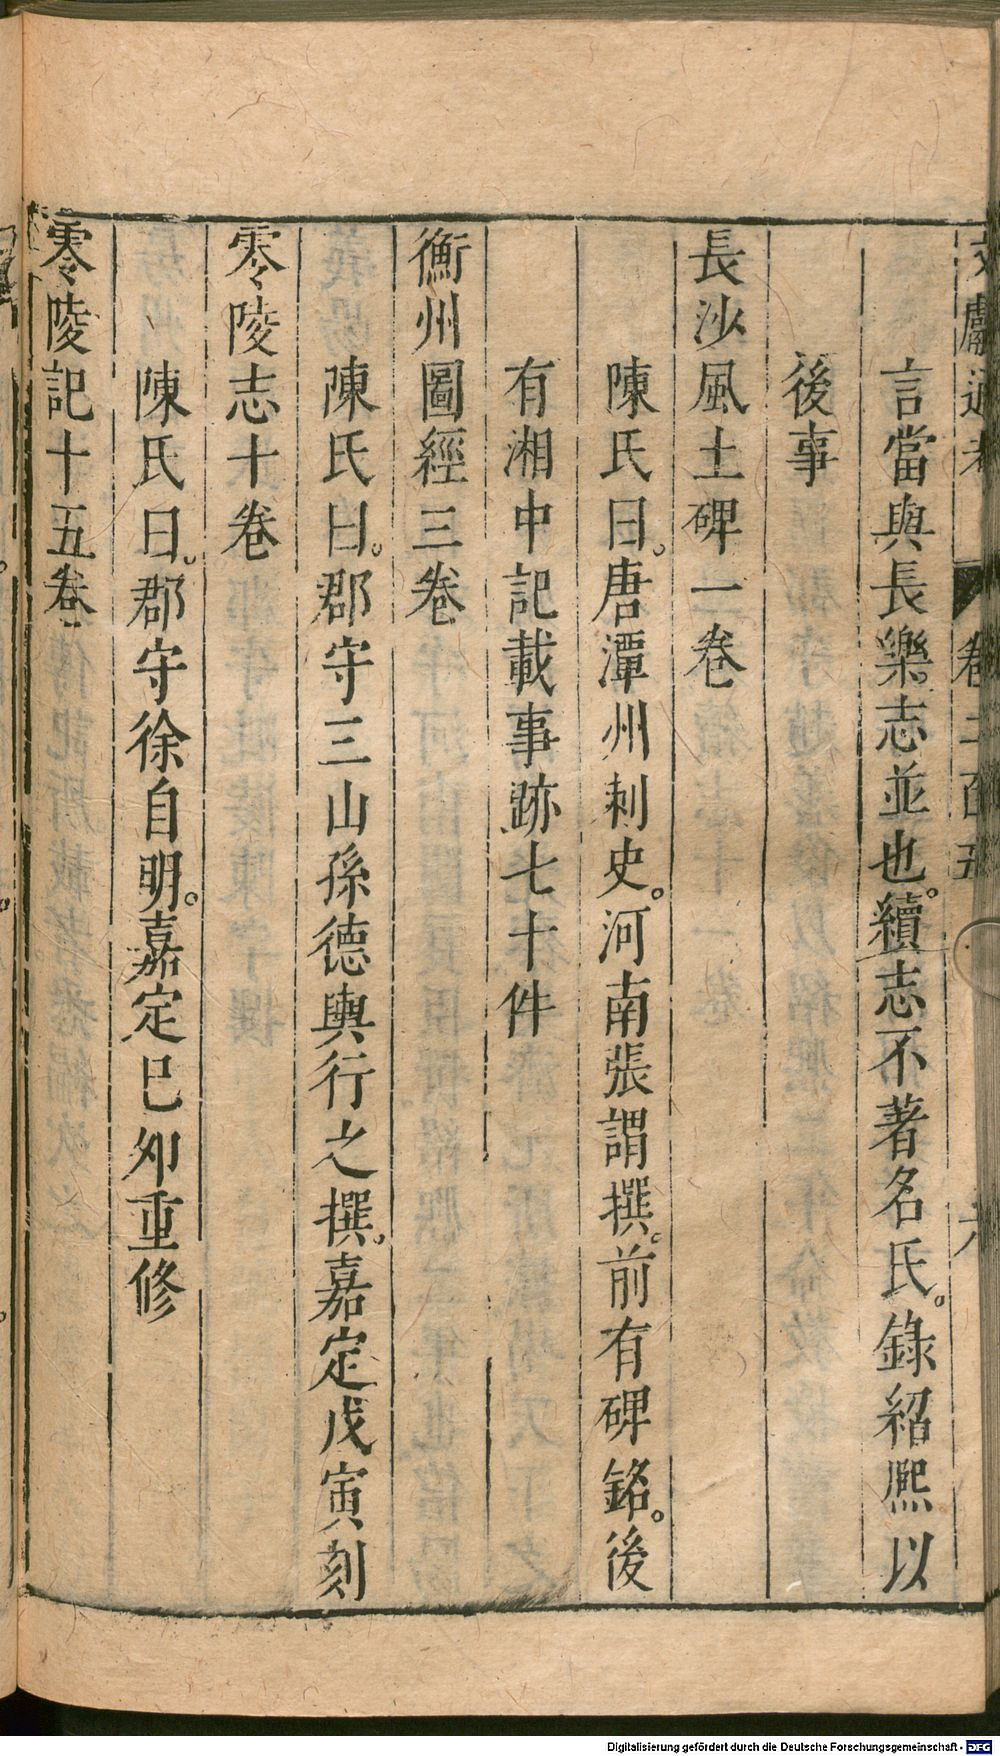 文獻通考 卷二百五 六
言當與長樂志並也。續志不著名氏。錄紹熙以
後事
長沙風土碑一卷
陳氏曰。唐潭州刺史。河南張謂撰。前有碑銘。後
有湘中記載事跡七十件
衡州圖經三卷
陳氏曰。郡守三山孫德輿行之撰。嘉定戊寅刻
零陵志十卷
陳氏曰。郡守徐自明。嘉定巳夘重修
零陵記十五卷
Digitalisierung gefördert durch die Deutsche Forschungsgemeinschaft - DFG